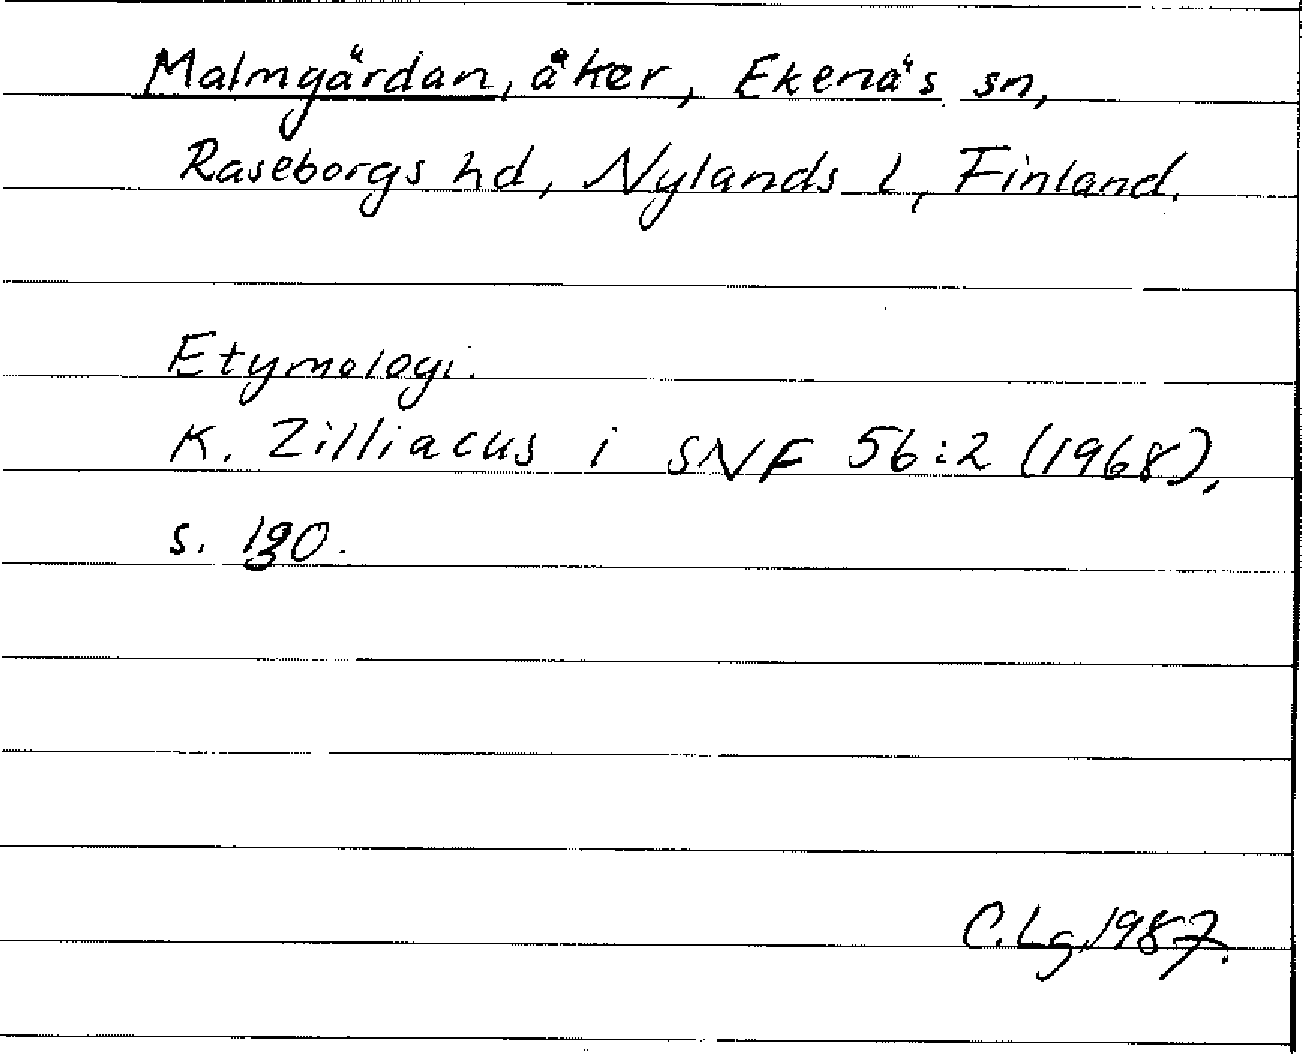 Malmgärdan, åker, Ekenäs sn,
Raseborgs hd, Nylands l, Finland.
Etymologi.
K. Zilliacus i SNF 56:2 (1968),
s.
C. Lg, 1987.